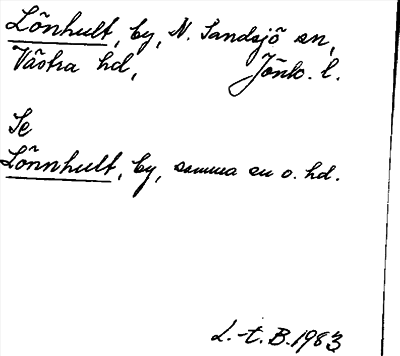 Lönhult, by, N. Sandsjö sn,
Västra hd, Jönk. l.
Se
Lönnhult, by, samma sn o. hd.
L.-t. B. 1983